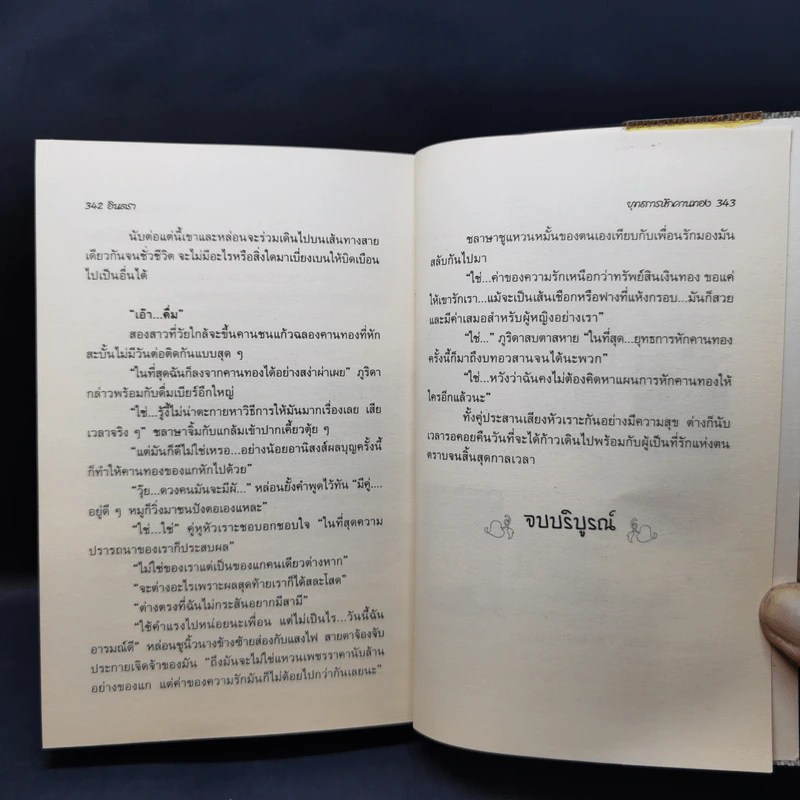 342 อินตรา
นับต่อแต่นี้เขาและหล่อนจะร่วมเดินไปบนเส้นทางสาย
เดียวกันจนชั่วชีวิต จะไม่มีอะไรหรือสิ่งใดมาเบี่ยงเบนให้บิดเบือน
ไปเป็นอื่นได้
“เอ๊า...ดื่ม”
สองสาวที่วัยใกล้จะขึ้นคานชนแก้วฉลองคานทองที่หัก
สะบั้นไม่มีวันต่อติดกันแบบสุด ๆ
“ในที่สุดฉันก็ลงจากคานทองได้อย่างสง่าผ่าเผย” ภูริดา
กล่าวพร้อมกับดื่มเบียร์อีกใหญ่
“ใช่...รู้งี้ไม่น่าตะกายหาวิธีการให้มันมากเรื่องเลย เสีย
เวลาจริง ๆ” ชลาษาจิ้มกับแกล้มเข้าปากเคี้ยวตุ้ย ๆ
“แต่มันก็ดีไม่ใช่เหรอ...อย่างน้อยอานิสงส์ผลบุญครั้งนี้
ก็ทำให้คานทองของแกหักไปด้วย”
“วุ้ย...ดวงคนมันจะมีผั...” หล่อนยั้งคำพูดไว้ทัน “มีคู่....
อยู่ดี ๆ หมูก็วิ่งมาชนปังตอเองแหละ”
“ใช่...ใช่” คู่หูหัวเราะชอบอกชอบใจ “ในที่สุดความ
ปรารถนาของเราก็ประสบผล”
“ไม่ใช่ของเราแต่เป็นของแกคนเดียวต่างหาก”
“จะต่างอะไรเพราะผลสุดท้ายเราก็ได้สละโสด”
“ต่างตรงที่ฉันไม่กระสันอยากมีสามี”
“ใช้คำแรงไปหน่อยนะเพื่อน แต่ไม่เป็นไร...วันนี้ฉัน
อารมณ์ดี” หล่อนชูนิ้วนางข้างซ้ายส่องกับแสงไฟ สายตาจ้องจับ
ประกายเจิดจ้าของมัน “ถึงมันจะไม่ใช่แหวนเพชรราคานับล้าน
อย่างของแก แต่ค่าของความรักมันก็ไม่ด้อยไปกว่ากันเลยนะ”
ยุทธการหักคานทอง 343
ชลาษาชูแหวนหมั้นของตนเองเทียบกับเพื่อนรักมองมัน
สลับกันไปมา
“ใช่...ค่าของความรักเหนือกว่าทรัพย์สินเงินทอง ขอแค่
ให้เขารักเรา...แม้จะเป็นเส้นเชือกหรือฟางที่แห้งกรอบ...มันก็สวย
และมีค่าเสมอสำหรับผู้หญิงอย่างเรา”
“ใช่...” ภูริดาสบตาสหาย “ในที่สุด...ยุทธการหักคานทอง
ครั้งนี้ก็มาถึงบทอวสานจนได้นะพวก”
“ใช่...หวังว่าฉันคงไม่ต้องคิดหาแผนการหักคานทองให้
ใครอีกแล้วนะ”
ทั้งคู่ประสานเสียงหัวเราะกันอย่างมีความสุข ต่างก็นับ
เวลารอคอยคืนวันที่จะได้ก้าวเดินไปพร้อมกับผู้เป็นที่รักแห่งตน
ตราบจนสิ้นสุดกาลเวลา
จบบริบูรณ์